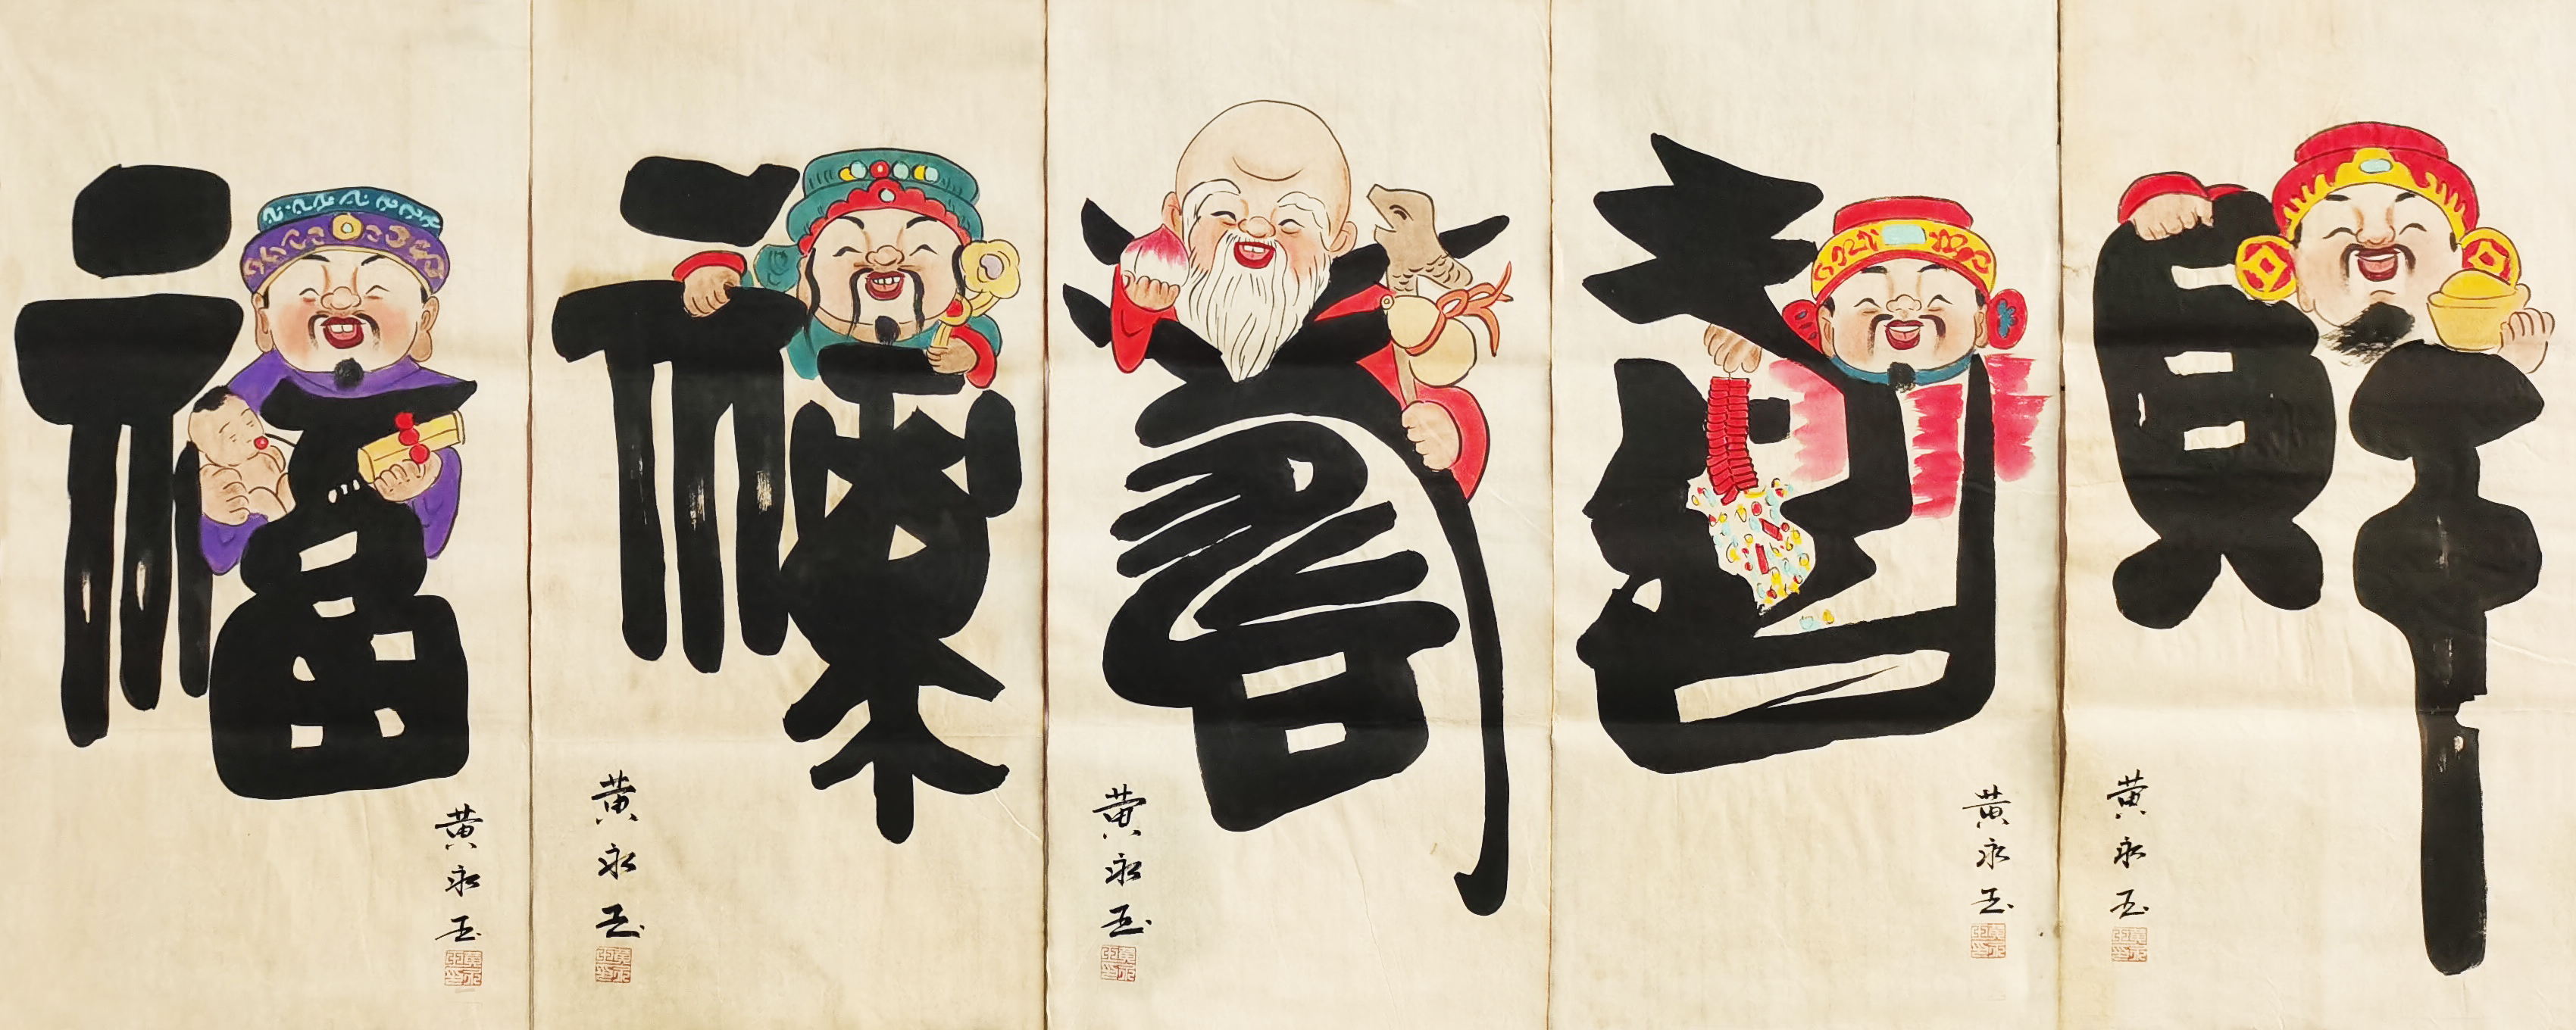 福
黄永玉
祿
黄永玉
壽
黄永玉
黄永玉
財
黄永玉